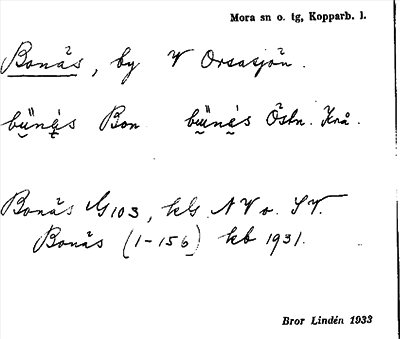 Mora sn o. tg, Kopparb. l.
Bonäs, by V Orsasjön.
bṳ̈nä́s Bon bṳ̈nä́s Östn. Krå.
Bonäs G103, kls NV o. SV.
Bonäs (1-156) kb 1931.
Bror Lindén 1933